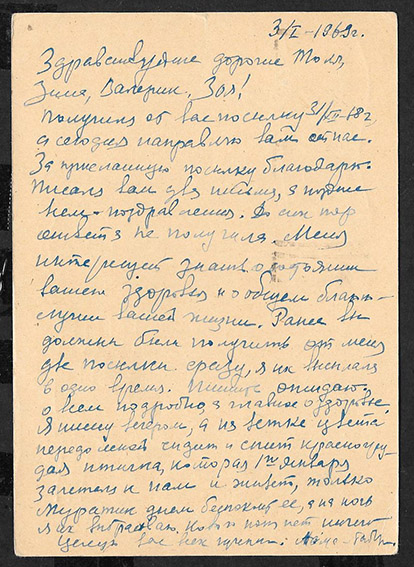 3/I-1969г.
Здравствуйте дорогие Толя,
Зина, Валерик, Зоя!
Получила от вас посылку 31/XII-68г,
а сегодня направляю вам от нас.
За присланную посылку благодарю.
Писала вам два письма, з
поздравления. До сих пор
ответа не получила. Меня
интересует знать о состоянии
вашего здоровья и о общем благо-
лучии вашей жизни. Ранее вы
должны были получить от меня
две посылки сразу, я их выслала
в одно время. Пишите, ожидаю,
о всем подробно, а главное о здоровье.
Я пишу вечером, а на ветке цвета
передо мной сидит и спит красногру-
дая птичка, которая 1го января
залетела к нам и живет, только
Мурзик днем беспокоит ее, а на ночь
я его, нет ничего
Целую вас всех